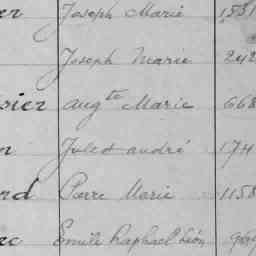 er Joseph Marie 1531
Joseph Marie 242
rier augte Marie 668
n Jules andré 174
rd Pierre Marie 1158
ec Emile Raphael Léon 969